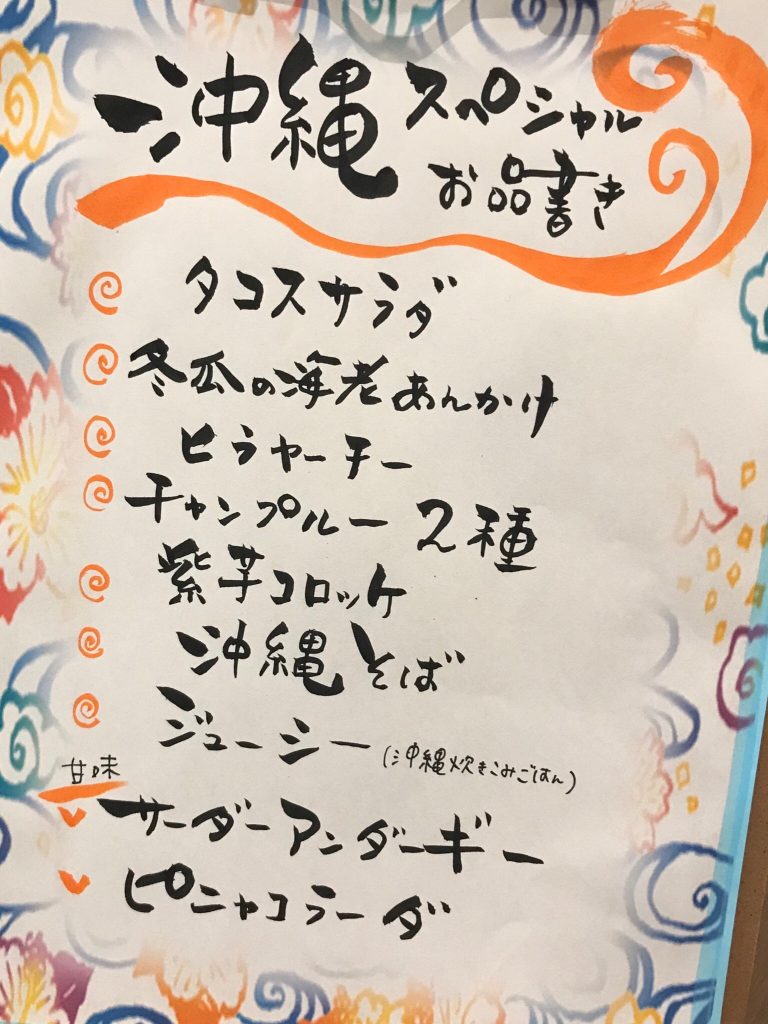 沖縄スペシャル
お品書き
タコスサラダ
冬瓜の海老あんかけ
ヒラヤーチー
チャンプルー2種
紫芋コロッケ
沖縄そば
ジューシー(沖縄炊きこみごはん)
甘味
サーダーアンダーギー
ピニャコラーダ